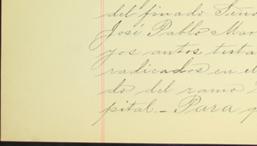 del finado Seño
José Pablo Mar
yos autos testa
radicados en el
do del ramo
pital.- Para